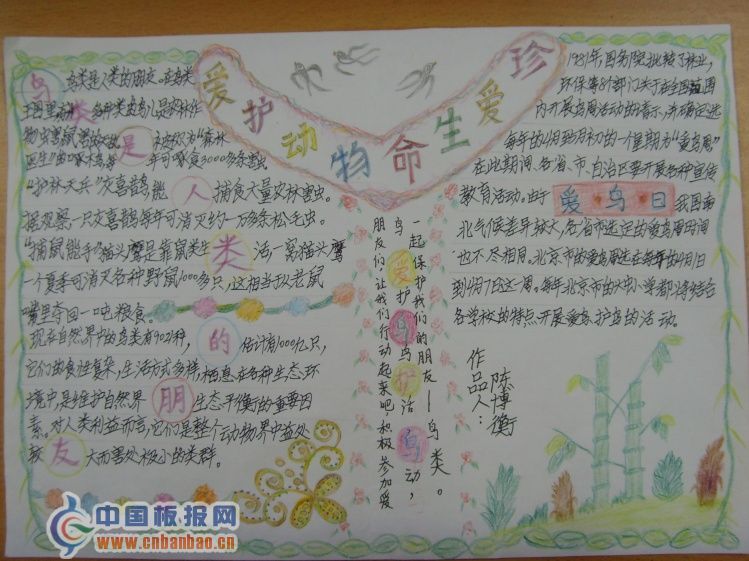 爱护动物命生爱珍
鸟类是人类的朋友
鸟类是人类的朋友。在鸟类
王国里有
多种类的鸟儿是农林作
物虫害鼠害的天敌
被称为"森林
医生"的啄木鸟每
年可啄食3000多条害虫
"护林天兵"灰喜鹊能
捕食大量农林害虫。
据观察一只灰喜鹊每年可消灭约一万多条松毛虫。
"捕鼠能手"猫头鹰是靠鼠类生
活一窝猫头鹰
一个夏季可消灭各种野鼠1000多只,这相当于从老鼠
嘴里夺回一吨粮食。
现在自然界中的鸟类有902种,
估计有1000亿只,
它们的食性复杂,生活方式多样,栖息在各种生态环
境中,是维护自然界
生态平衡的重要因
素。对人类利益而言,它们是整个动物界中益处
较
大而害处极小的类群。
朋友们,让我们行动起来吧,积极参加爱
鸟爱护鸟鸟护活鸟动,
一起保护我们的朋友—鸟类。
1981年,国务院批转了林业,
环保等8个部门关于在全国范围
内开展鸟周活动的请示,并确定选
每年的4月至5月初的一个星期为"爱鸟周"
在此期间,各省、市、自治区要开展各种宣传
教育活动。由于
爱·鸟·日
我国南
北气候差异较大,各省市选定的爱鸟周时间
也不尽相同。北京市的爱鸟周选在每年的4月1日
到4月7日这一周。每年北京市的大中小学都将结合
各学校的特点开展爱鸟、护鸟的活动。
作品人:
陈博衡
中国板报网
www.cnbanbao.cn